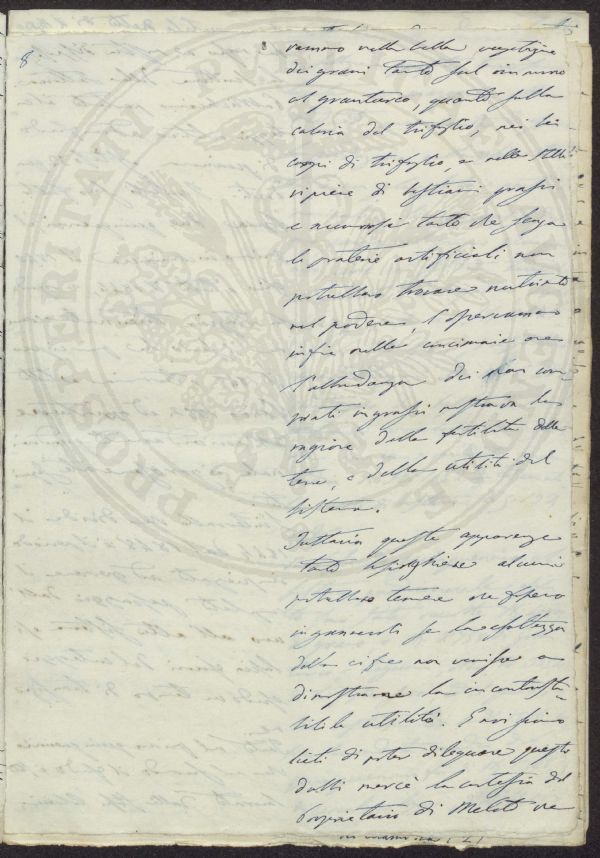 8
vamo nella bella vegetazione
dei grani tanto sul rinnuovo
al granturco, quanto sulla
caloria del trifoglio, nei bei
campi di trifoglio, e nelle stalle
ripiene di bestiami grassi
e numerosi tanto che senza
le praterie artificiali non
potrebbero trovare nutrimento
nel podere, l'
infine nelle concimaie ove
l'abbondanza dei non com-
prati ingrassi mostrava la
ragione della fertilità delle
terre, e della utilità del
sistema.
Tuttavia queste apparenze
tanto lusinghiere alcuni
potrebbero temere che fossero
ingannevoli se la esattezza
delle cifre non venisse a
dimostrarne la incontrasta-
bile utilità. E noi siamo
lieti di poter dileguare questi
dubbi mercè la cortesia del
Proprietario di Meleto che